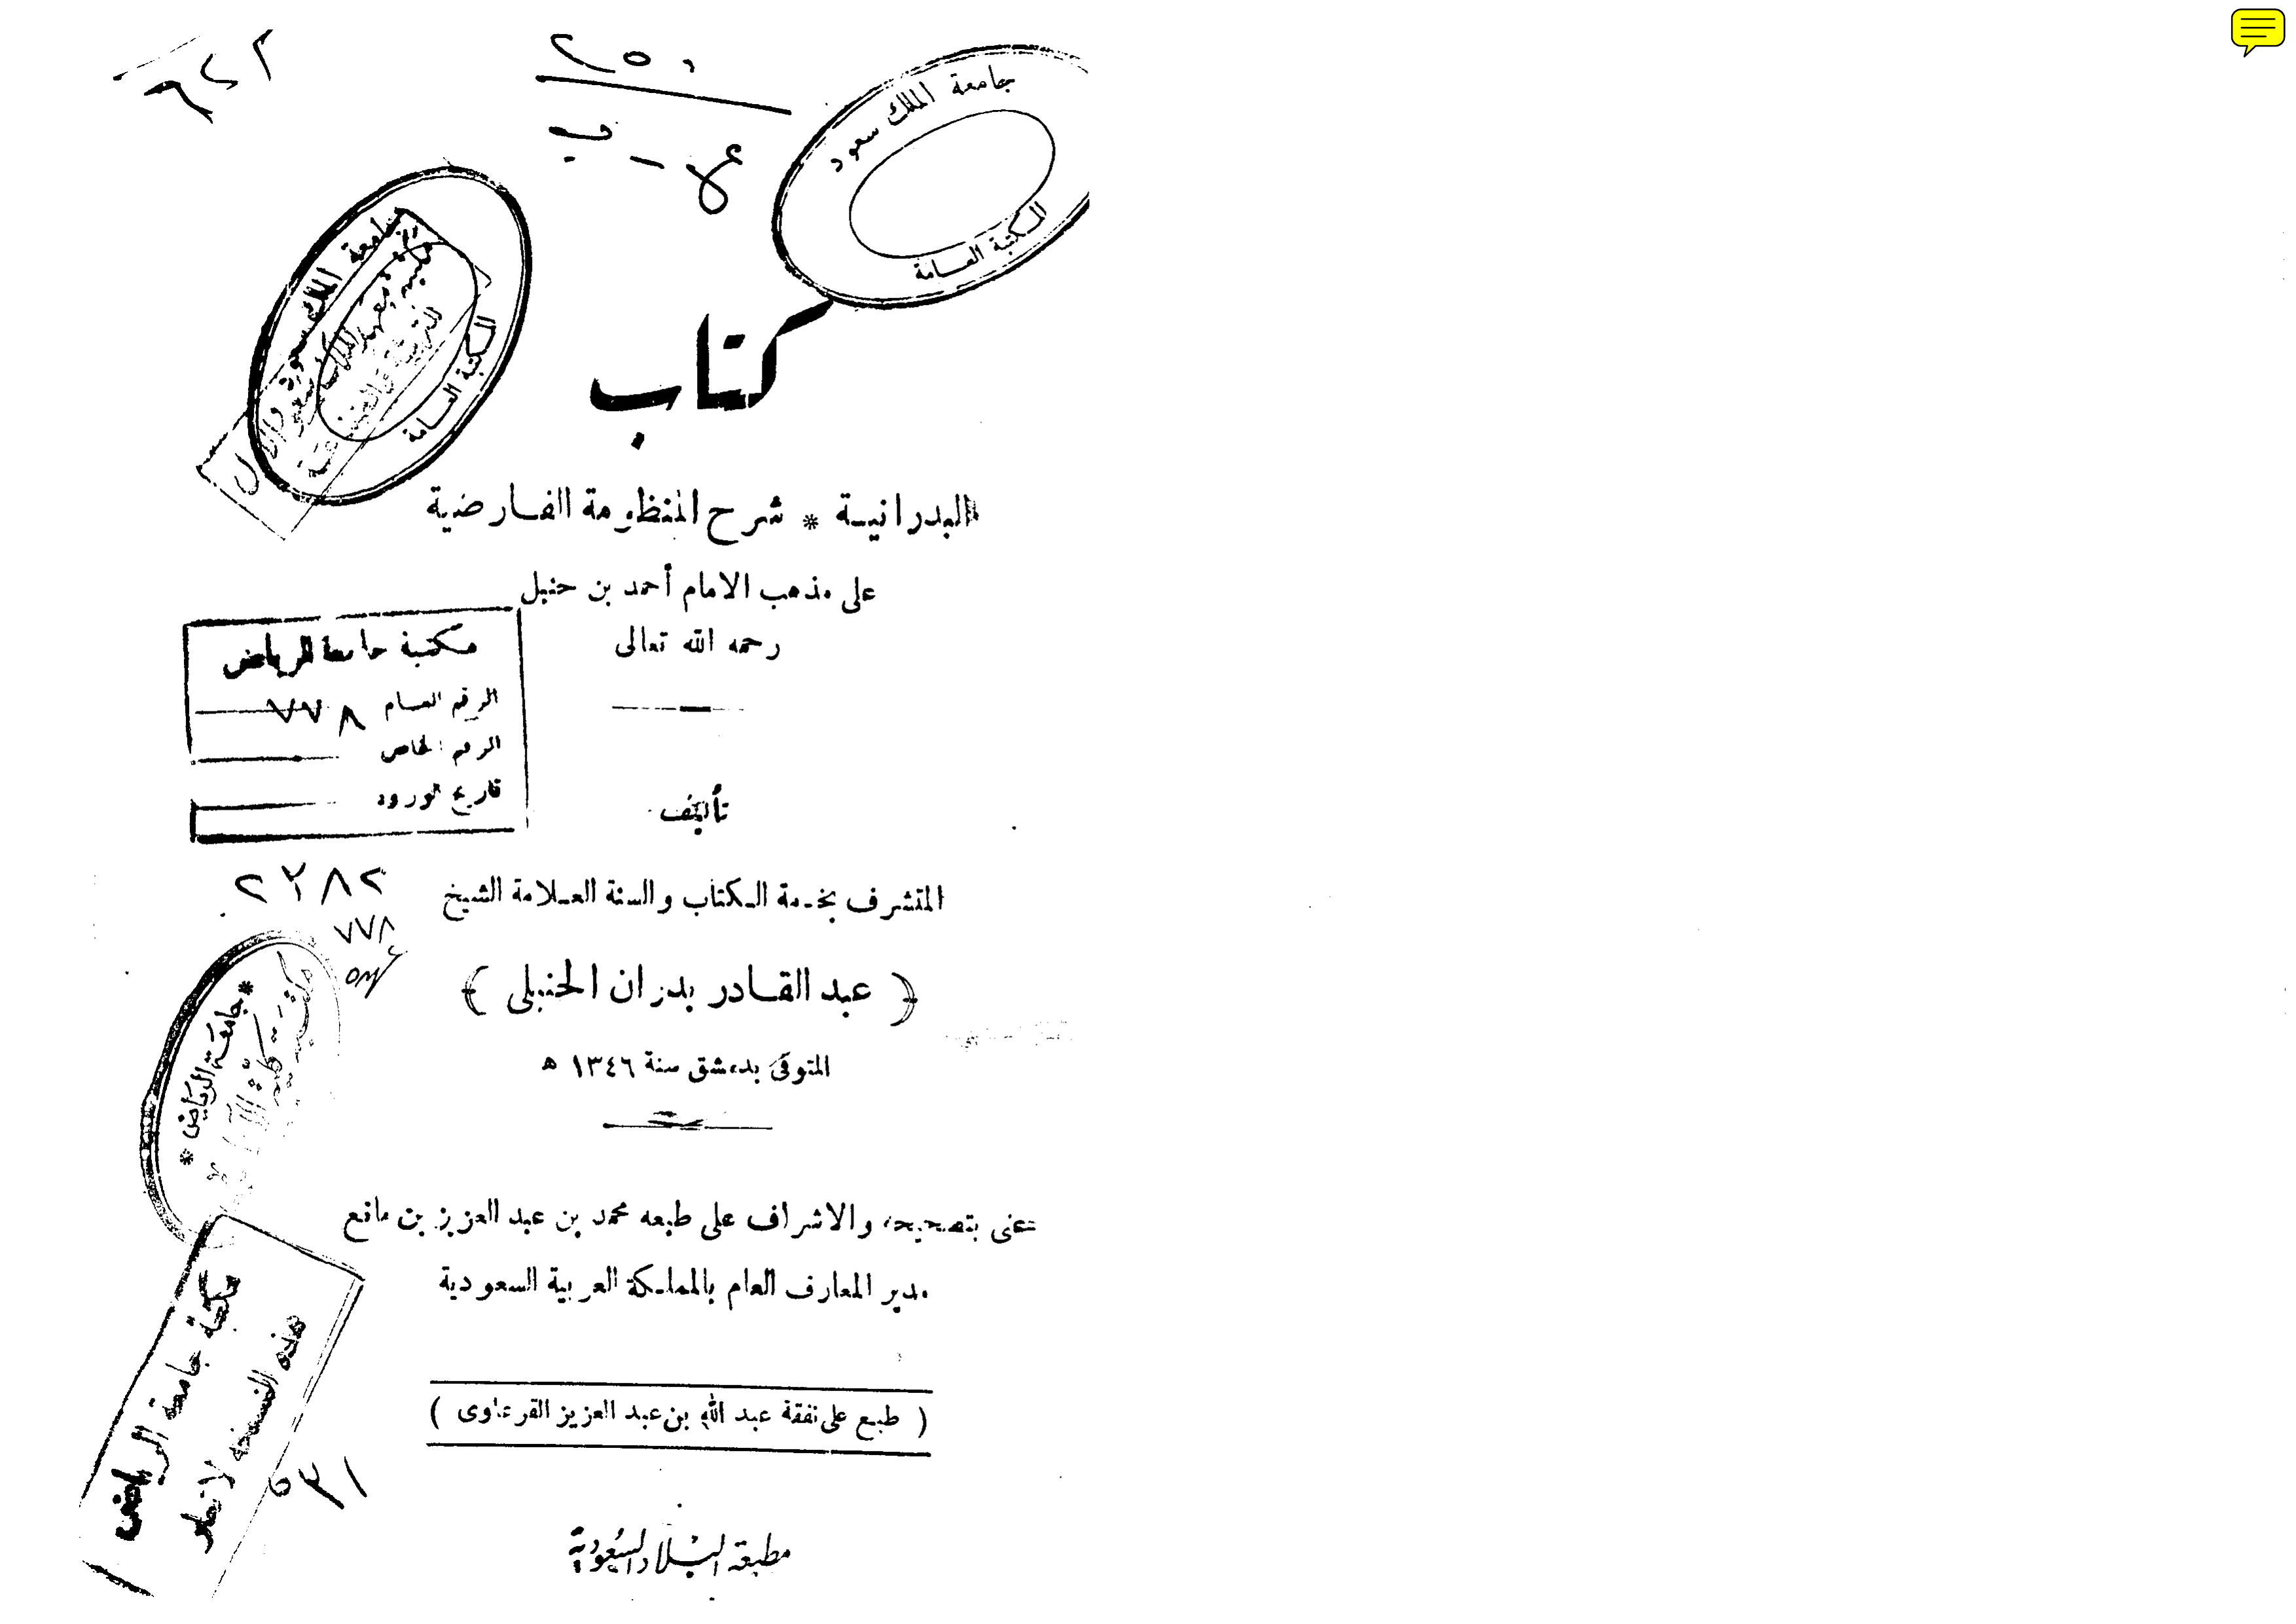 ٢٥٠
جامعة الملك سعود
المكتبة العامة
جامعة الملك سعود
المكتبة العامة
كتاب
البدرانية * شرح المنظومة الفارضية
على مذهب الامام أحمد بن حنبل
رحمه الله تعالى
مكتبة جامعة الرياض
الرقم العام ٧٧٨
الرقم الخاص
تاريخ الورود
تأليف
المتشرف بخدمة الكتاب والسنة العلامة الشيخ
٧٧٨
( عبد القادر بدران الحنبلى )
المتوفى بدمشق سنة ١٣٤٦ ه
* جامعة الرياض *
عنى بتصحيحه والاشراف على طبعه محمد بن عبد العزيز بن مانع
مدير المعارف العام بالمملكة العربية السعودية
مكتبة جامعة الرياض
هذه النسخة لا تعار
( طبع على نفقة عبد الله بن عبد العزيز القرعاوى )
٥٣١
مطبعة البلاد السعودية